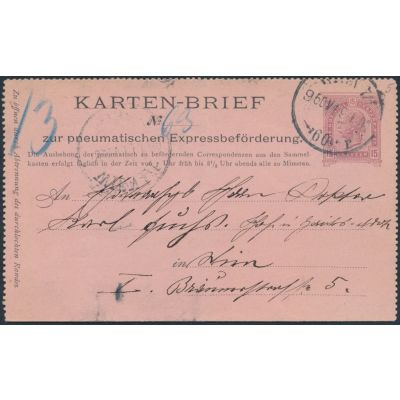 13
KARTEN-BRIEF
№ 63
zur pneumatischen Expressbeförderung.
Die Aushebung der pneumatisch zu befördernden Correspondenzen aus den Sammel-
kasten erfolgt täglich in der Zeit von 7 Uhr früh bis 8½ Uhr abends alle 20 Minuten.
An Hochwohlgeb Herrn Doctor
Karl Fuchs. Hof- u Gerichts-
in Wien
I. Bräunerstraße 5.
Zu öffnen durch Abtrennung des durchlochten Randes
15